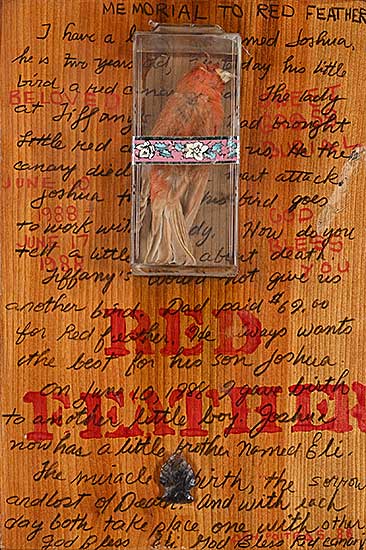 MEMORIAL TO RED FEATHER
I have a named Joshua,
he is two years old, yesterday his little
bird, a red canary The lady
BELOVED SWEET
at Tiffany's had brought
little red us. He the
canary died heart attack.
JUNE 10
Joshua his bird goes
1988 GOD
to work with dy. How do you
JUNE 17 BLESS
tell a little about death
1988 YOU
Tiffany's would not give us
another bird. Dad paid $69.00
RED
for Red feather. He always wants
the best for his son Joshua
On June 10, 1988 I gave birth
FEATHER
to another little boy. Joshua
now has a little brother named Eli.
The miracle birth, the sorrow
and lost of Death. And with each
day both take place one with other
God Bless Eli. God Bless Red canary